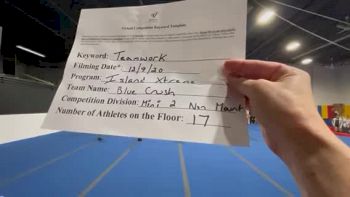 Virtual Competition Keyword Template
Keyword: Teamwork
Filming Date: 12/9/20
Program: Island Xtreme
Team Name: Blue Crush
Competition Division: Mini 2 Non Mount
Number of Athletes on the Floor: 17